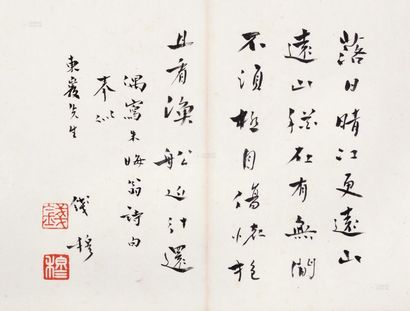 落日晴江更遠山
遠山猶在有無間
不須極目傷懷抱
且看漁船近計還
偶寫朱晦翁詩句
奉似
先生
錢穆
錢
穆